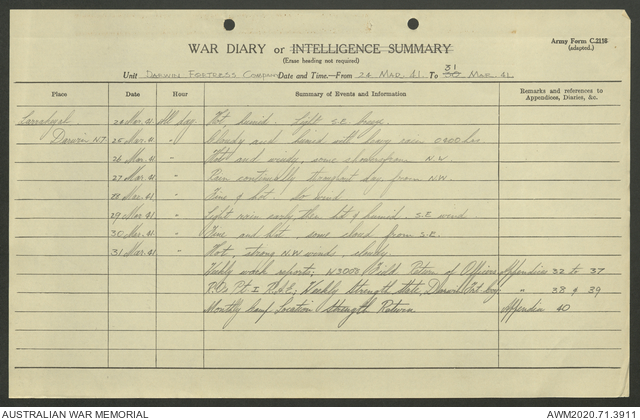 Army Form C.2118
(adapted.)
WAR DIARY or INTELLIGENCE SUMMARY
(Erase heading not required)
Unit Darwin Fortress Company Date and Time.—From 24 Mar. 41. To 31 Mar. 41
Place Date Hour Summary of Events and Information Remarks and references to Appendices, Diaries, &c.
Larrakeyah 24 Mar. 41 All day. Hot humid. Light S.E. breeze.
Darwin N.T. 25 Mar. 41 " Cloudy and humid with heavy rain 0400 hrs
26 Mar. 41 " Hot and windy, some showers from N.W.
27 Mar. 41 " Rain continually throughout day, from N.W.
28 Mar. 41 " Fine & hot. No wind
29 Mar. 41 " Light rain early then hot & humid. S.E. wind
30 Mar. 41 " Fine and hot. some cloud from S.E.
31 Mar. 41 " Hot, strong N.W. winds, cloudy.
Weekly work report; W3008 Field Return of Officers Appendices 32 to 37
R.O. Pt I R.A.E; Weekly Strength State, Darwin Fort. Coy " 38 & 39
Monthly Camp Location Strength Return Appendix 40
AUSTRALIAN WAR MEMORIAL AWM2020.71.3911